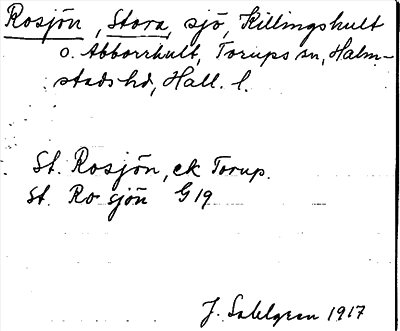 Rosjön, Stora, sjö, Killingshult
o. Abborrhult, Torups sn, Halm-
stads hd, Hall. l.
St. Rosjön, ek Torup.
St. Ro sjön G 19
J. Sahlgren 1917